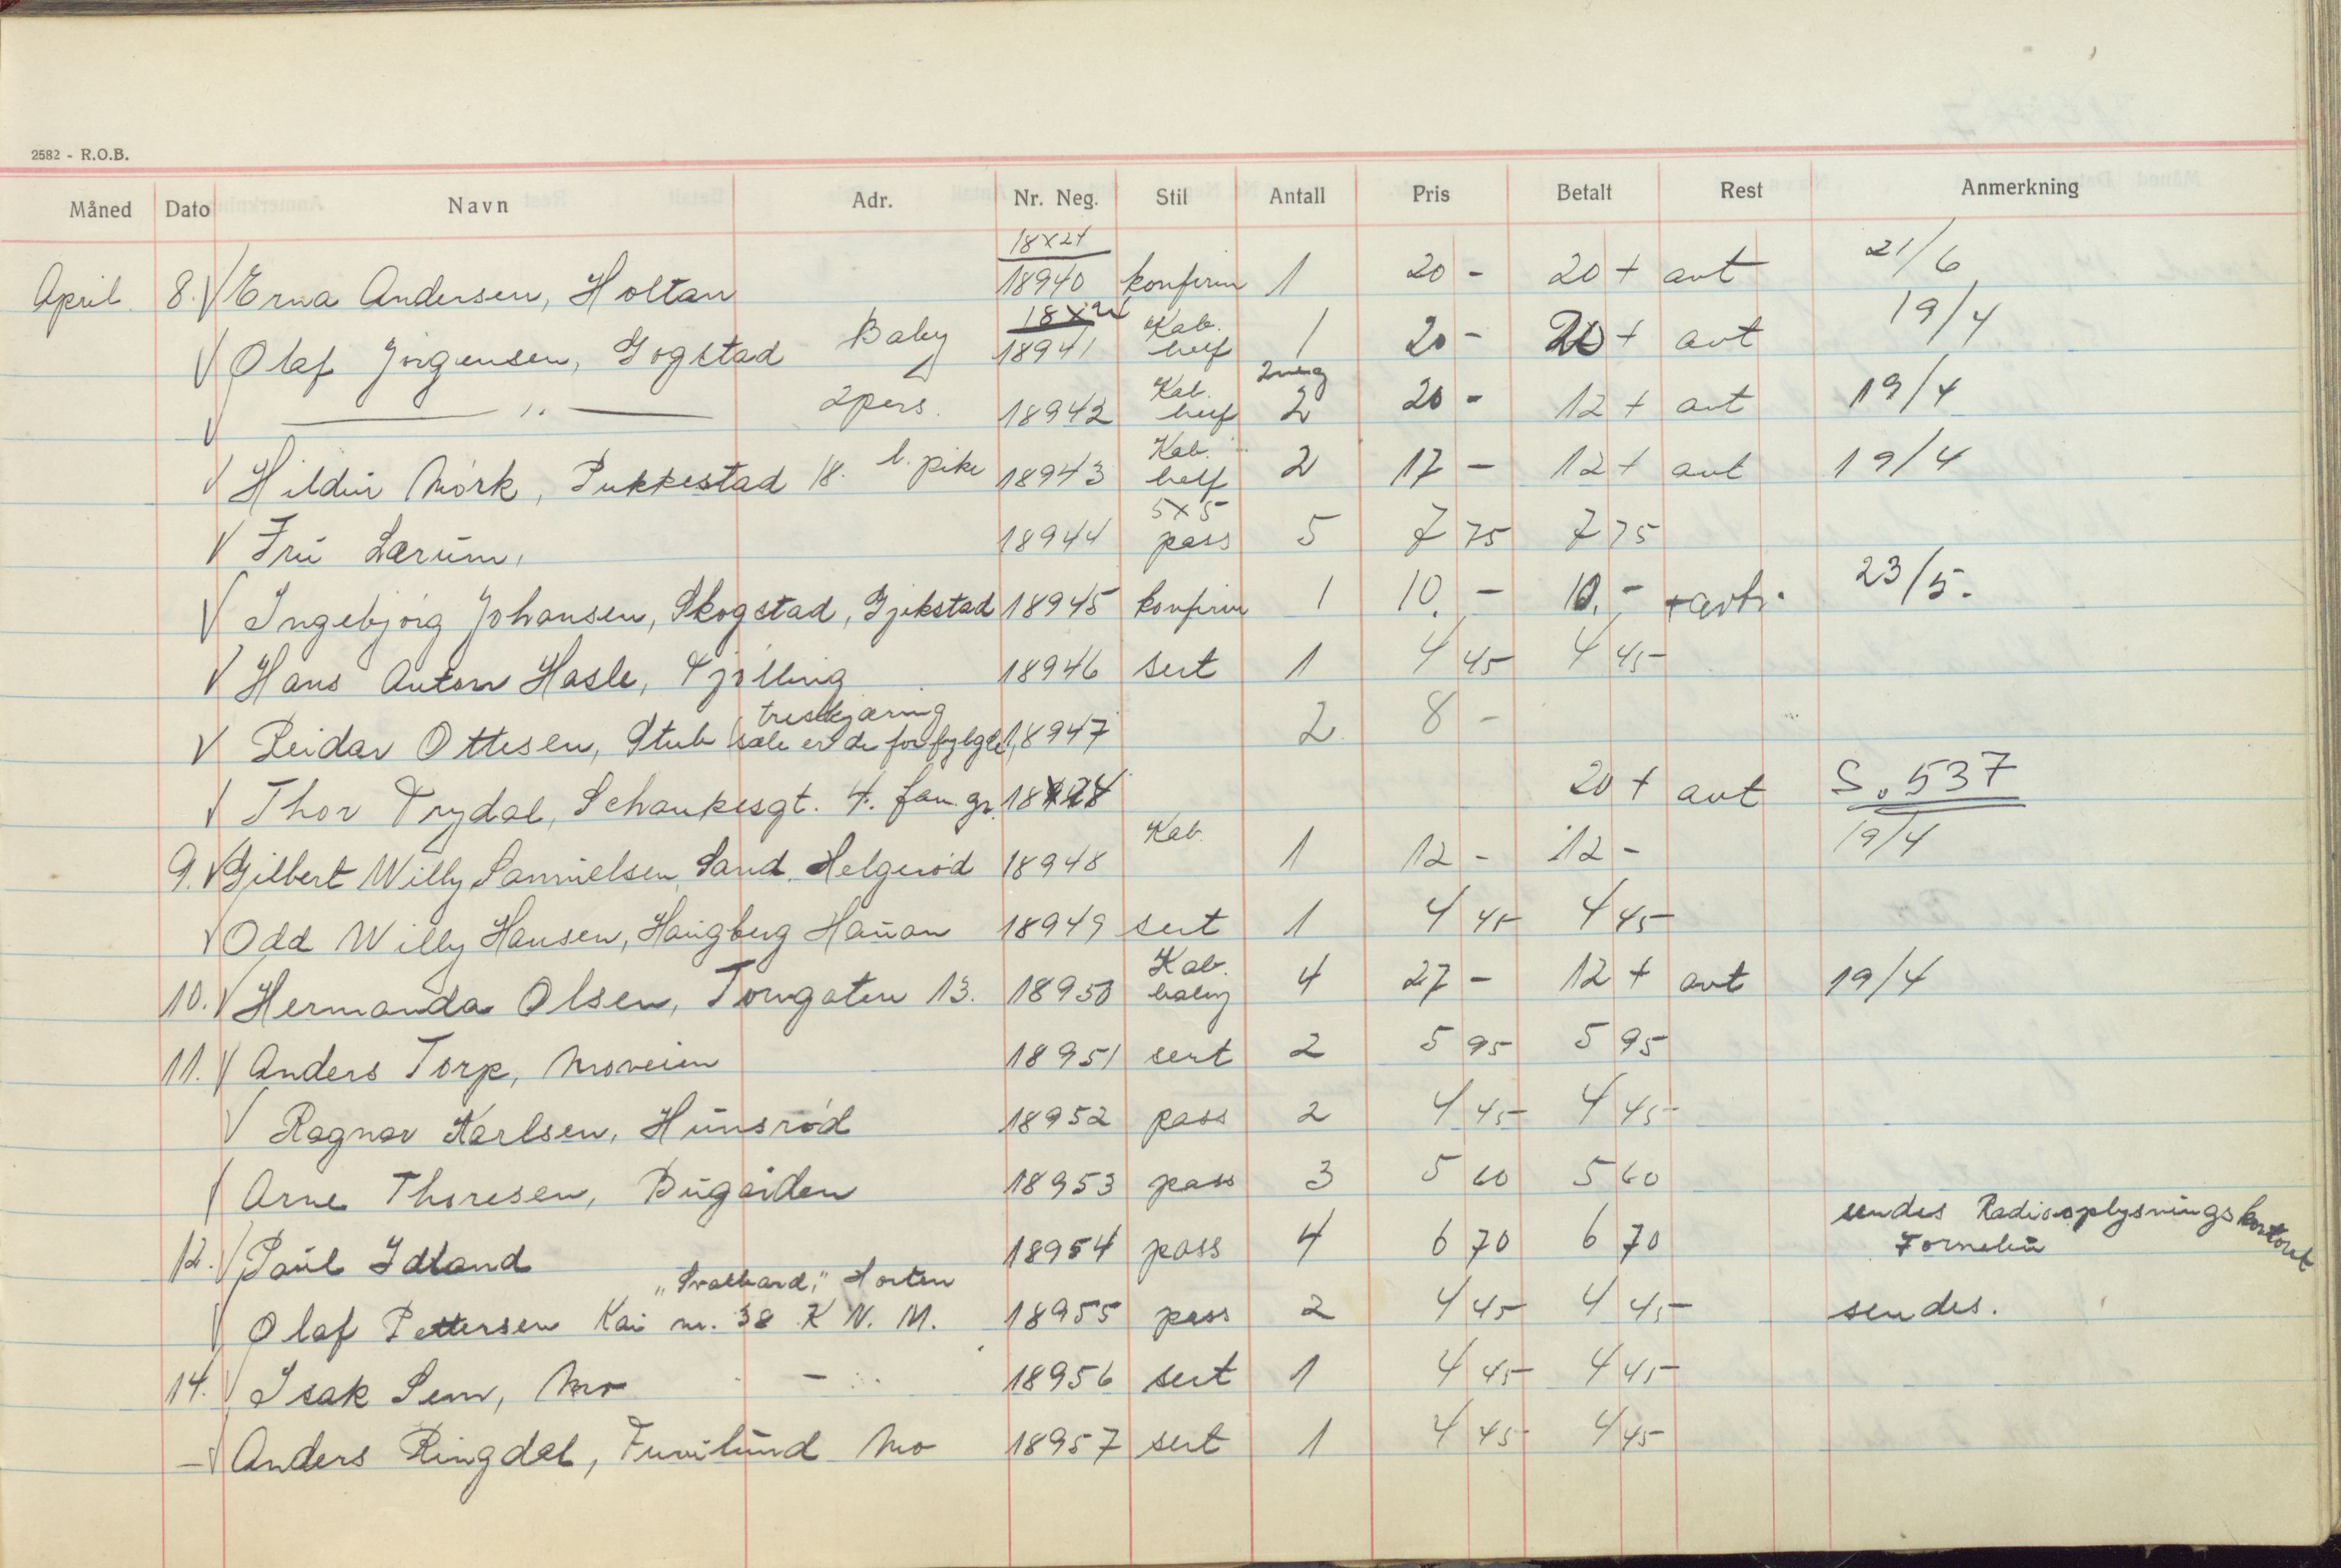 2582 - R.O.B.
Måned Dato Navn Adr. Nr. Neg. Stil Antall Pris Betalt Rest Anmerkning
18x24
April. 8. V Erna Andersen, Holtan 18940 konfirm 1 20 - 20 + avt 21/6
18x24 Kab.
V Olaf Jörgensen, Gogstad Baby 18941 helf 1 20 - 20 + avt 19/4
Kab. 2 neg
V — " — 2 pers. 18942 helf 2 20 - 12 + avt 19/4
Kab.
V Hildur Mörk, Pukkestad 18. l. pike 18943 helf 2 17 - 12 + avt 19/4
5x5
V Frü Lærum, 18944 pass 5 7 75 7 75
V Ingebjörg Johansen, Skogstad, Gjekstad 18945 konfirm 1 10. - 10. - + avtr. 23/5.
V Hans Anton Hasle, Tjölling 18946 sert 1 4 45 4 45
treskjæring
V Reidar Ottesen, Stub 18947 2 8 -
V Thor Trydal, Schankesgt. 4. fam. gr. 18x24 20 + avt S. 537
Kab.
9. V Gilbert Willy Samuelsen Sand Helgeröd 18948 1 12 - 12 - 19/4
V Odd Willy Hansen, Haugberg Hauan 18949 sert 1 4 45 4 45
Kab.
10. V Hermanda Olsen, Torvgaten 13. 18950 baby 4 27 - 12 + avt 19/4
11. V Anders Torp, Moveien 18951 sert 2 5 95 5 95
V Ragnar Karlsen, Hünsröd 18952 pass 2 4 45 4 45
V Arne Thoresen, Bügaarden 18953 pass 3 5 60 5 60
12. V Paül Idland 18954 pass 4 6 70 6 70 sendes Radiooplysningskontoret
Fornebü
"Svalbard," Horten
V Olaf Pettersen Kai nr. 38 K N. M. 18955 pass 2 4 45 4 45 sendes.
14. V Isak Sem, Mo - 18956 sert 1 4 45 4 45
- V Anders Ringdal, Furulünd Mo 18957 sert 1 4 45 4 45